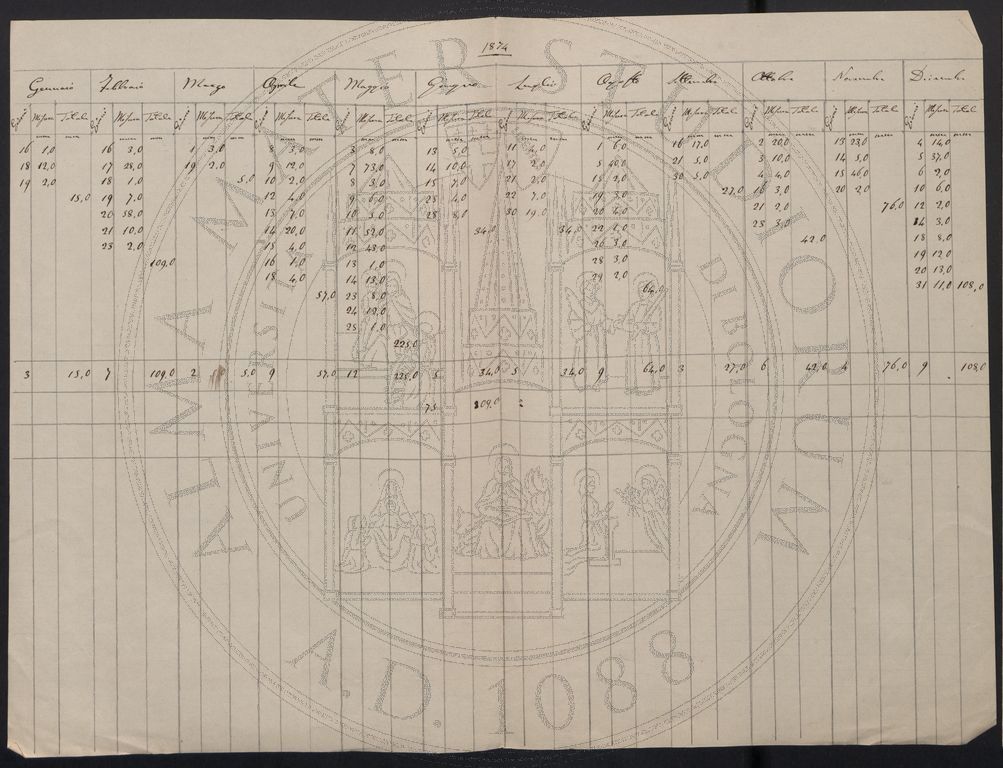 1874
Gennaio Febbraio Marzo Aprile Maggio Giugno Luglio Agosto Settembre Ottobre Novembre Dicembre
Giorni Misura Totale Giorni Misura Totale Giorni Misura Totale Giorni Misura Totale Giorni Misura Totale Giorni Misura Totale Giorni Misura Totale Giorni Misura Totale Giorni Misura Totale Giorni Misura Totale Giorni Misura Totale Giorni Misura Totale
mm mm mm mm mm mm mm mm mm mm mm mm mm mm mm mm mm mm mm mm mm mm mm mm
16 1,0 16 3,0 1 3,0 8 3,0 3 8,0 13 5,0 11 4,0 1 6,0 16 17,0 2 20,0 13 23,0 4 14,0
18 12,0 17 28,0 19 2,0 9 12,0 7 73,0 14 10,0 17 2,0 5 40,0 21 5,0 3 10,0 14 5,0 5 37,0
19 2,0 18 1,0 5,0 10 2,0 8 3,0 15 7,0 21 2,0 18 2,0 30 5,0 4 4,0 15 46,0 6 2,0
15,0 19 7,0 12 4,0 9 6,0 25 4,0 22 7,0 19 3,0 27,0 16 3,0 20 2,0 10 6,0
20 58,0 13 7,0 10 5,0 28 8,0 30 19,0 20 4,0 21 2,0 76,0 12 2,0
21 10,0 14 20,0 11 52,0 34,0 34,0 22 1,0 23 3,0 14 3,0
23 2,0 15 4,0 12 43,0 26 3,0 42,0 18 8,0
109,0 16 1,0 13 1,0 28 3,0 19 12,0
18 4,0 14 13,0 29 2,0 20 13,0
57,0 23 8,0 64,0 31 11,0 108,0
24 12,0
25 1,0
225,0
3 15,0 7 109,0 2 5,0 9 57,0 12 225,0 5 34,0 5 34,0 9 64,0 3 27,0 6 42,0 4 76,0 9 108,0
75
ALMA MATER STUDIORUM
UNIVERSITÀ DI BOLOGNA
A.D. 1088